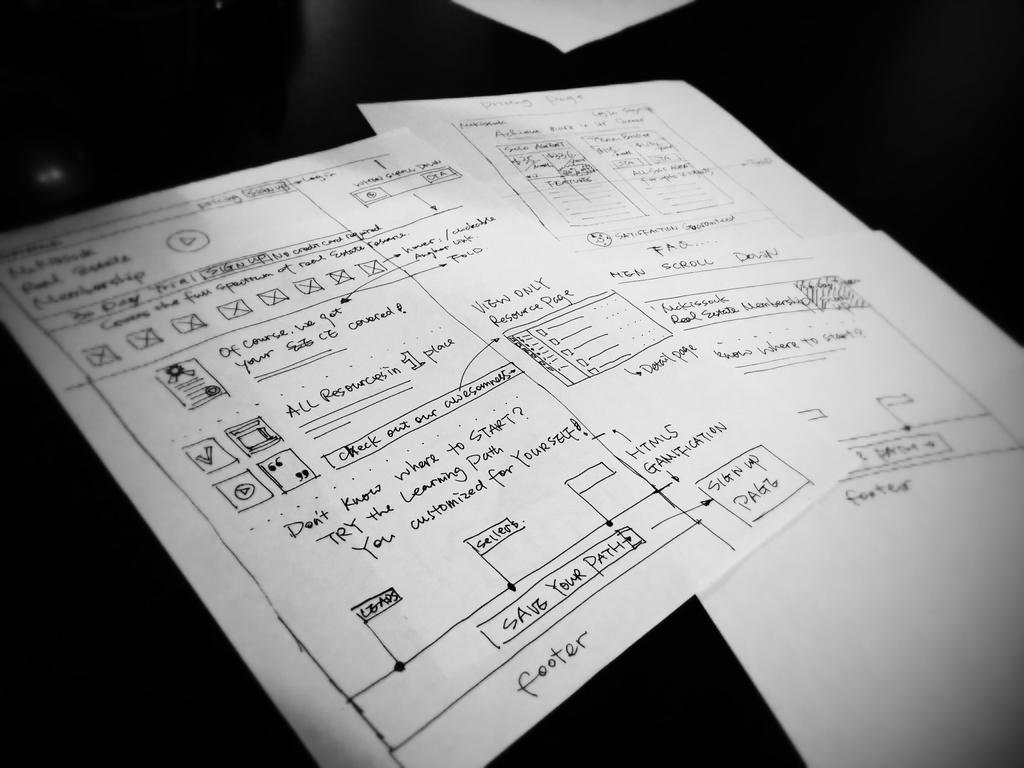 pricing SIGN UP Login
WHEN SCROLL DOWN
CTA
Real Estate
Membership
30 Day Trial SIGN UP No credit card required
Covers the full spectrum of real Estate
FOLD
Of Course, we got
your CE covered!
All Resources in 1 place
Check out our awesomness
VIEW ONLY
Resource Page
Detail page
Don't know where to START?
TRY the Learning Path
You customized for YOURSELF!
HTML5
GAMIFICATION
SIGN UP
PAGE
Sellers
LEADS
SAVE YOUR PATH
footer
pricing page
Login Signup
Achieve more in Ur Career
SOLO AGENT
FEATURES
SATISFACTION Guaranteed
F.A.Q....
SCROLL DOWN
Real Estate Membership
know where to start?
PATH
footer